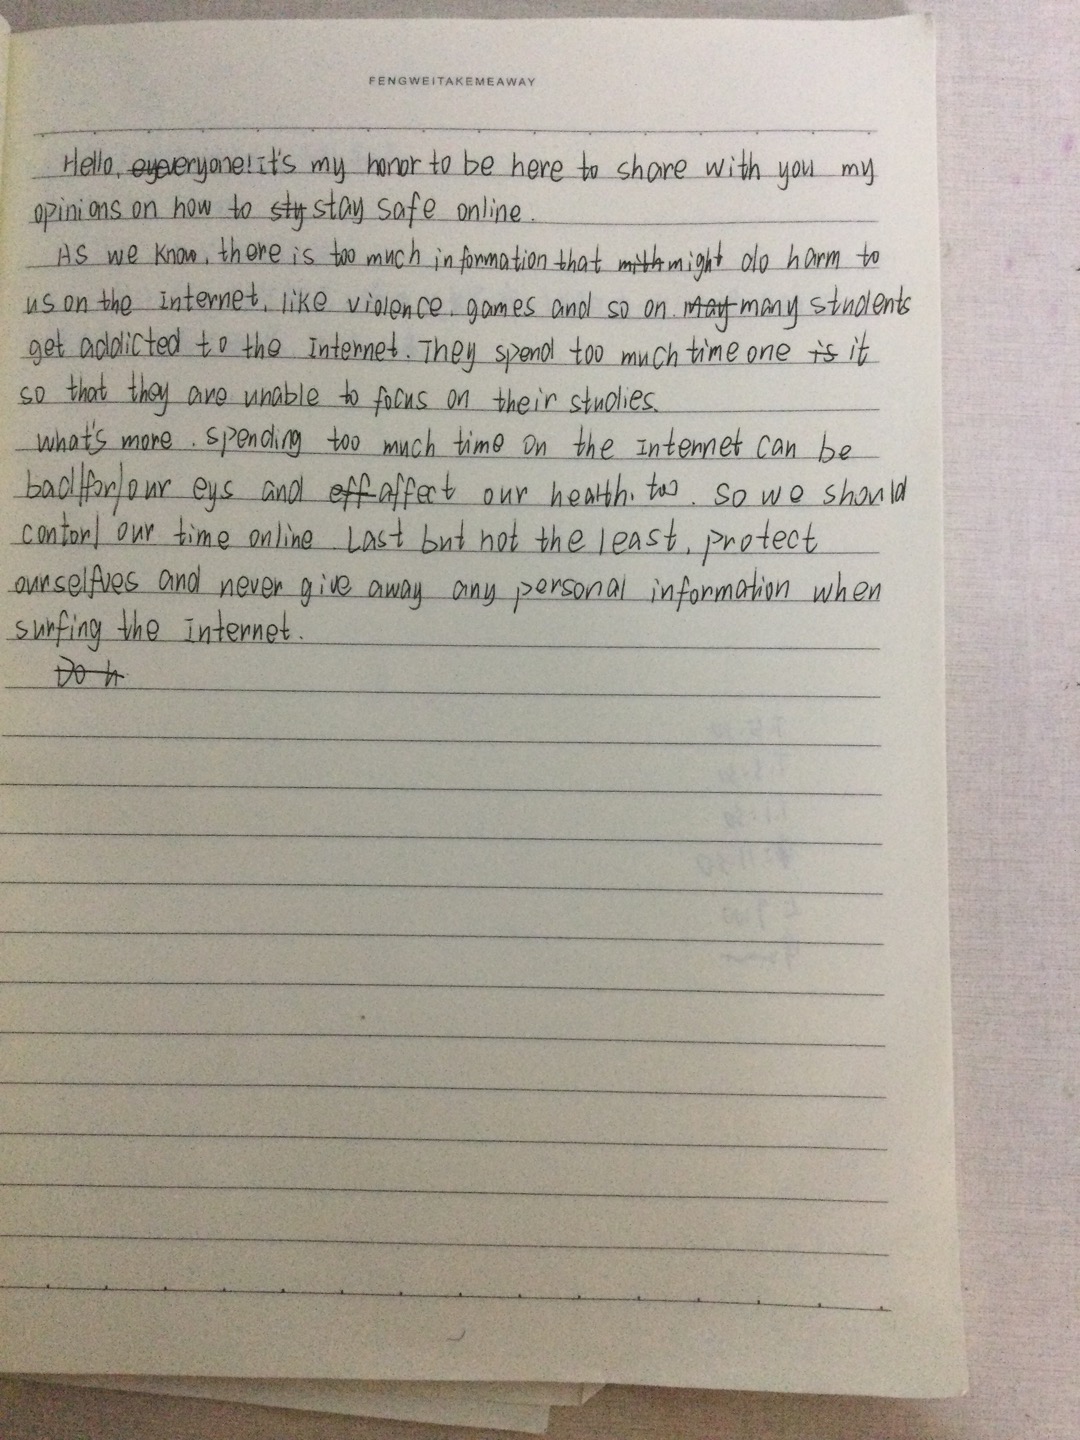 FENGWEITAKEMEAWAY
Hello, eyeveryone! it's my honor to be here to share with you my
opinions on how to sty stay safe online.
As we know, there is too much information that mith might do harm to
us on the internet, like violence, games and so on. May many students
get addicted to the Internet. They spend too much time one is it
so that they are unable to focus on their studies.
what's more, spending too much time on the Internet can be
bad/for/our eys and eff affect our health, too. so we should
contorl our time online. Last but not the least, protect
ourselfves and never give away any personal information when
surfing the internet.
Do h